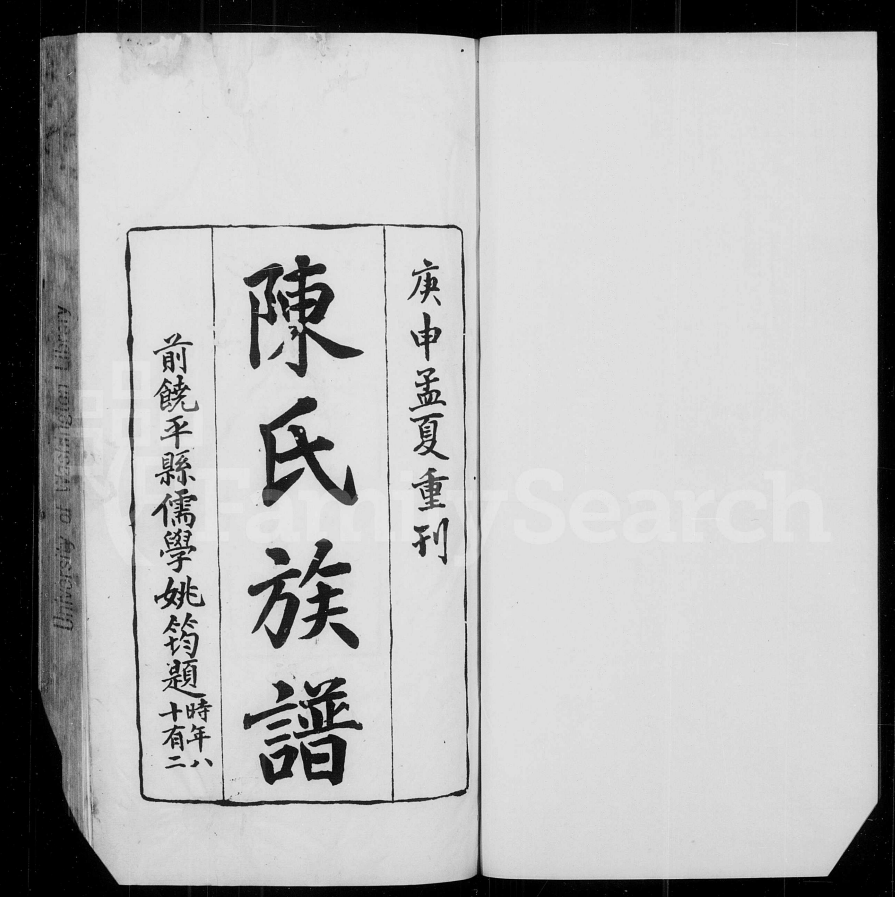 庚申孟夏重刊
陳氏族譜
前饒平縣儒學姚筠題
時年八
十有二
FamilySearch